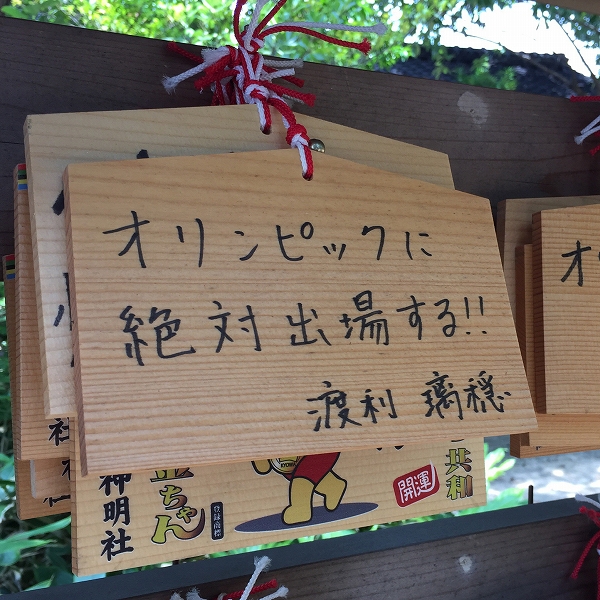 オリンピックに
絶対出場する!!
渡利 璃穏
神明社
金ちゃん
登録商標
開運
共和
オ